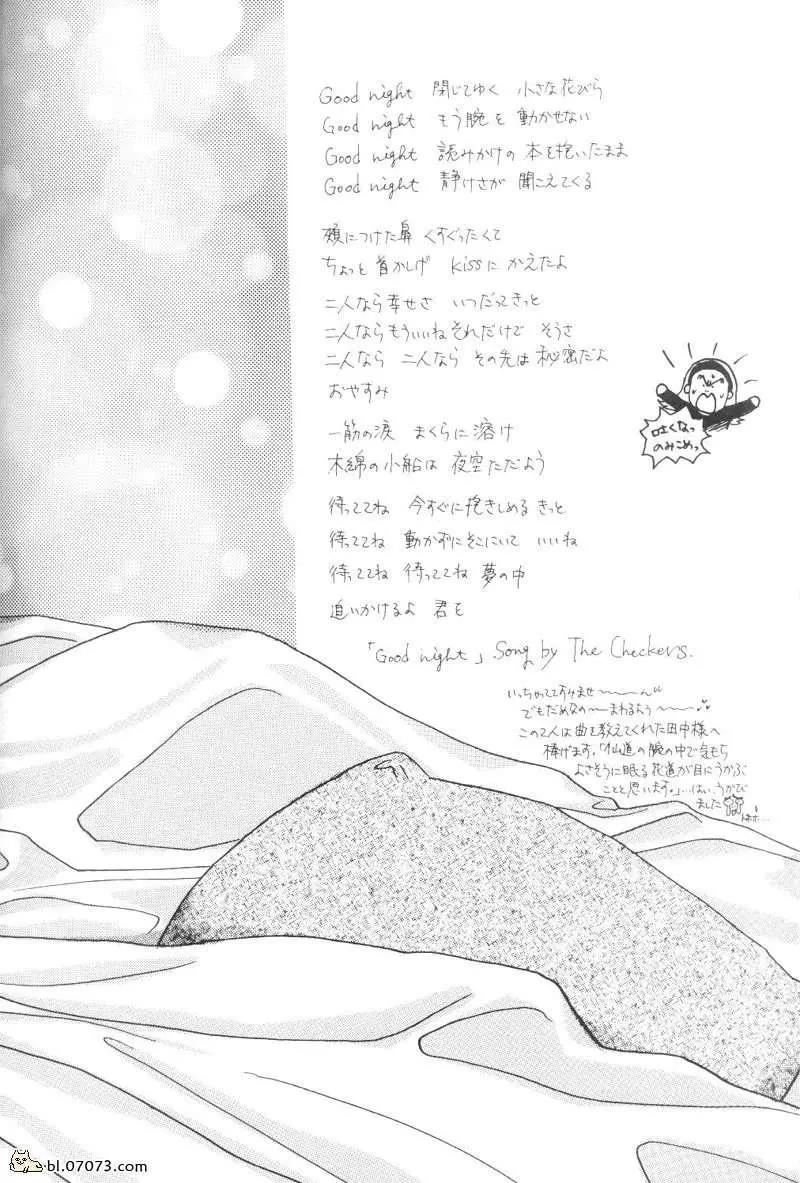 Good night 閉じてゆく 小さな花びら
Good night もう腕を 動かせない
Good night 読みかけの 本を抱いたまま
Good night 静けさが 聞こえてくる
頬につけた鼻 くすぐったくて
ちょっと首かしげ Kissに かえたよ
二人なら幸せさ いつだってきっと
二人ならもういいねそれだけで そうさ
二人なら 二人なら その先は 秘密だよ
おやすみ
吐くなっ
のみこめっ
一筋の涙 まくらに溶け
木綿の小船は 夜空ただよう
待っててね 今すぐに抱きしめる きっと
待っててね 動かずにそこにいて いいね
待っててね 待っててね 夢の中
追いかけるよ 君を
「Good night」 Song by The Checkers.
いっちゃっててすみませ〜〜ん
でもだめなの〜まわるよう〜〜
この2人は曲を教えてくれた田中様へ
捧げます。「仙道の腕の中で気もち
よさそうに眠る花道が目にうかぶ
ことと思います。」…はい、うかび
ました
bl.07073.com